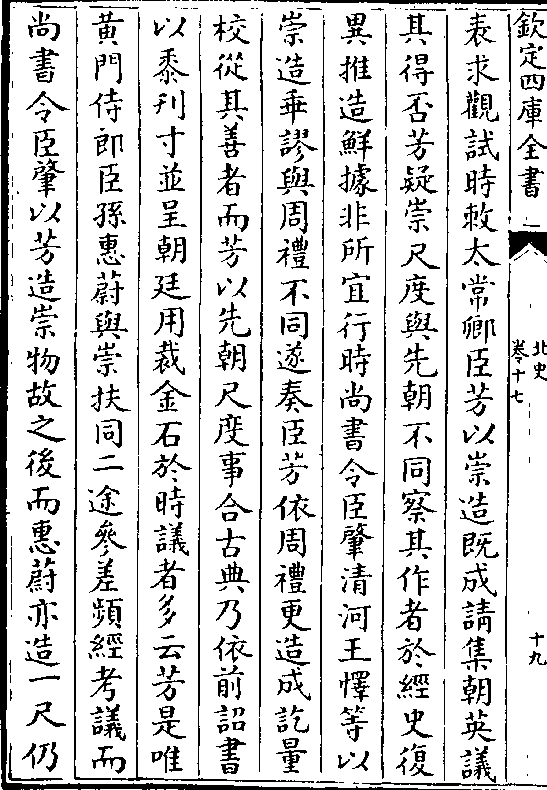 欽定四庫全書
北史
卷十七
十九
表求觀試時敕太常卿臣芳以崇造既成請集朝英議
其得否芳疑崇尺度與先朝不同察其作者於經史復
異推造鮮據非所宜行時尚書令臣肇清河王懌等以
崇造乖謬與周禮不同遂奏臣芳依周禮更造成訖量
校從其善者而芳以先朝尺度事合古典乃依前詔書
以黍刊寸並呈朝廷用裁金石於時議者多云芳是唯
黃門侍郎臣孫惠蔚與崇扶同二途參差頻經考議而
尚書令臣肇以芳造崇物故之後而惠蔚亦造一尺仍